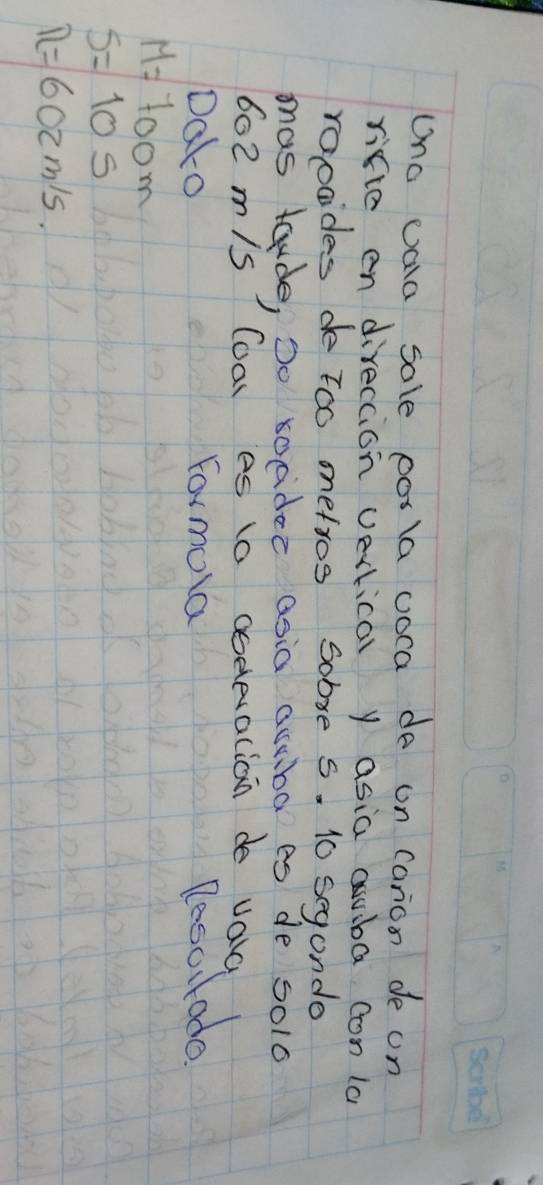 Scribe
D M A
una vala sale por la voca de un cañon de un
rifle en dirección vertical y asia arriba con la
rapaides de 700 metros sobre s. 10 segundo
mas tarde, so rapidez asia arriba es de solo
602 m/s Coal es la aseleración de vala
Dato Formula Resoltado.
M= 700m
S= 10 s
R= 602 m/s.